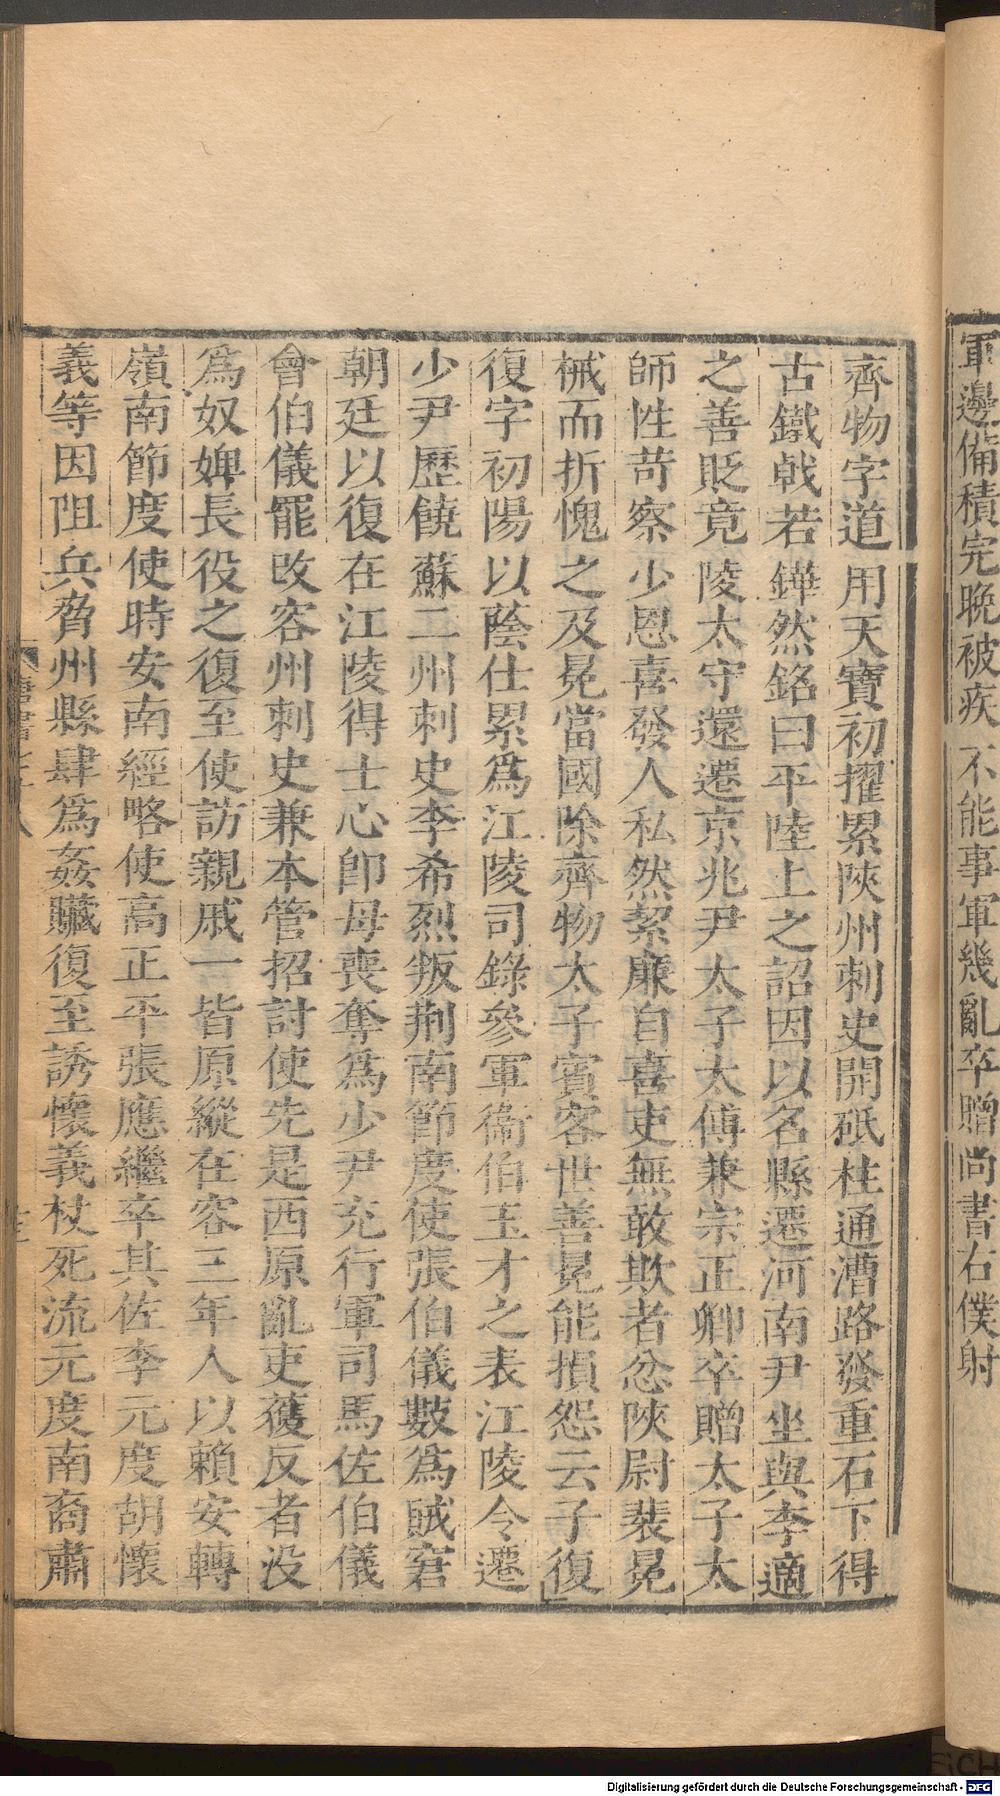 軍邊備積完晚被疾不能事軍幾亂卒贈尚書右僕射
齊物字道用天寶初擢累陝州刺史開砥柱通漕路發重石下得
古鐵戟若鏵然銘曰平陸上之詔因以名縣遷河南尹坐與李適
之善貶竟陵太守還遷京兆尹太子太傅兼宗正卿卒贈太子太
師性苛察少恩喜發人私然絜廉自喜吏無敢欺者忿陝尉裴冕
械而折愧之及冕當國除齊物太子賓客世善冕能損怨云子復
復字初陽以蔭仕累爲江陵司錄參軍衞伯玉才之表江陵令遷
少尹歷饒蘇二州刺史李希烈叛荆南節度使張伯儀數爲賊窘
朝廷以復在江陵得士心卽母喪奪爲少尹充行軍司馬佐伯儀
會伯儀罷改容州刺史兼本管招討使先是西原亂吏獲反者没
爲奴婢長役之復至使訪親戚一皆原縱在容三年人以賴安轉
嶺南節度使時安南經略使高正平張應繼卒其佐李元度胡懷
義等因阻兵脅州縣肆爲姦贓復至誘懷義杖死流元度南裔肅
Digitalisierung gefördert durch die Deutsche Forschungsgemeinschaft - DFG